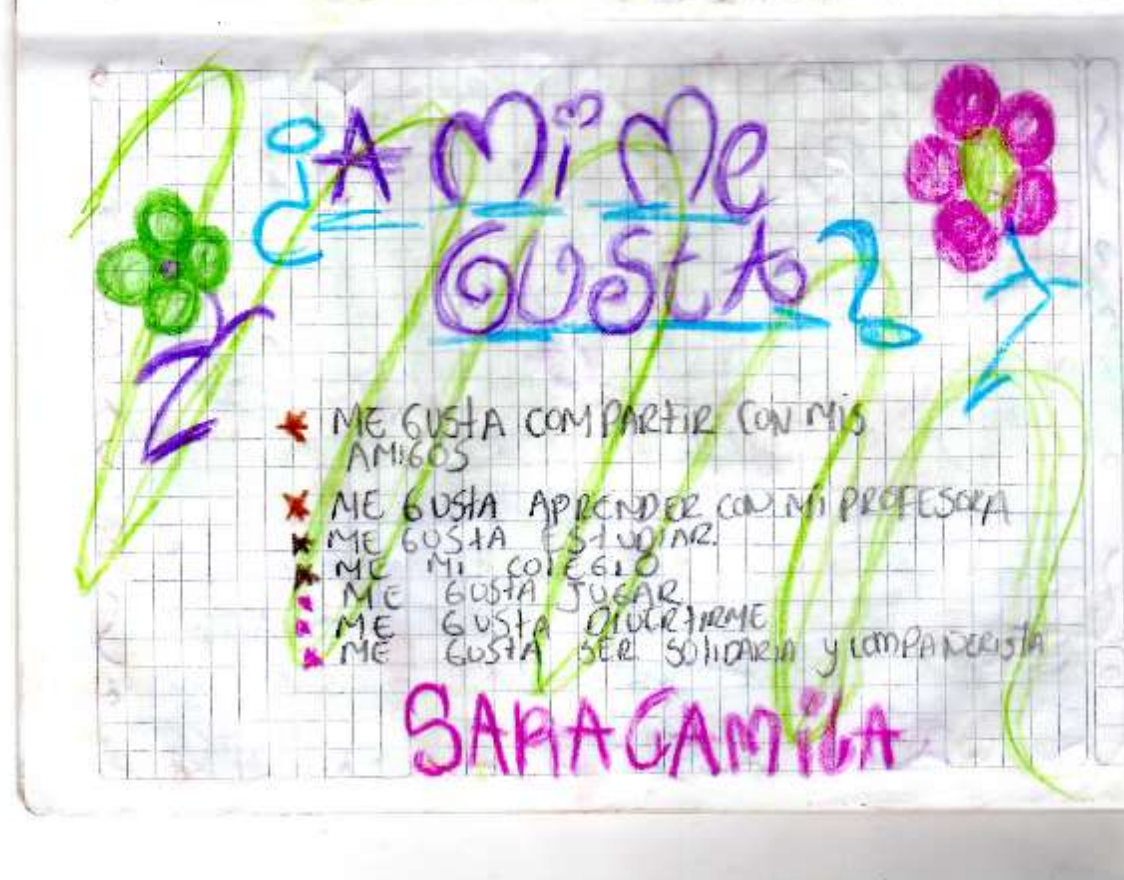 ¿A Mi Me
GUStA?
ME GUStA COMPARtIR CON MIS
AMIGOS
ME GUStA APRENDER CON MI PROFESORA
ME GUStA EStUDIAR.
ME MI COLEGIO
ME GUStA JUGAR
ME GUStA DIVERtIRME
ME GUStA SER SOlIDARIA y COMPAÑERIStA
SARA CAMiLA